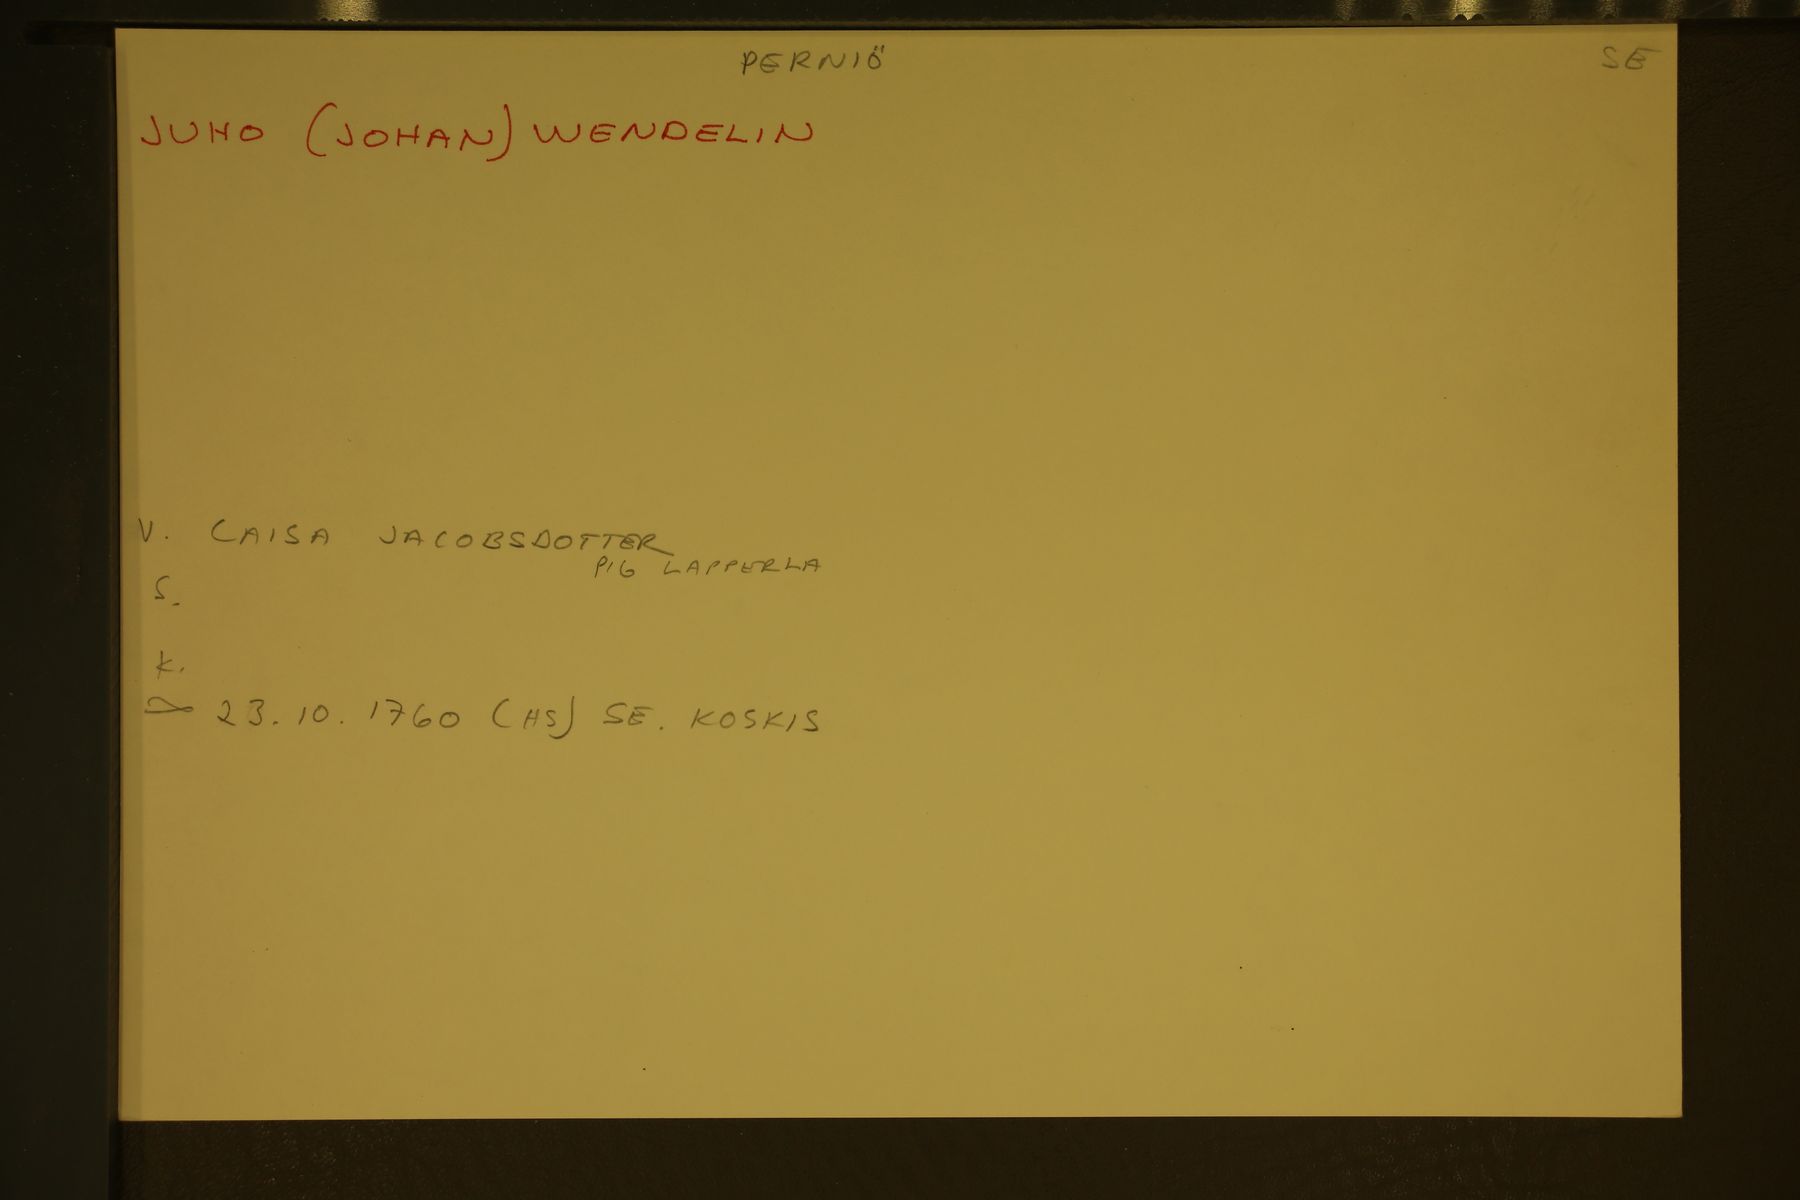 PERNIÖ SE
JUHO (JOHAN) WENDELIN
V. CAISA JACOBSDOTTER
PIG LAPPERLA
S.
K.
∞ 23.10.1760 (HS) SE. KOSKIS